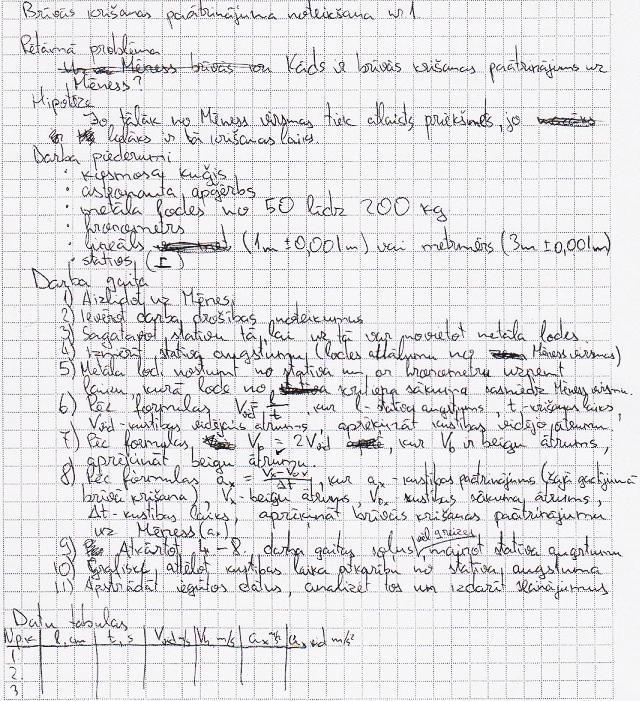 Brīvās krišanas paātrinājuma noteikšana nr.1
Pētāmā problēma
Kāds ir brīvās krišanas paātrinājums uz
Mēness?
Hipotēze
Jo tālāk no Mēness virsmas tiek atlaists priekšmets, jo
lielāks ir tā krišanas laiks.
Darba piederumi
· kosmosa kuģis
· astronauta apģērbs
· metāla lodes no 50 līdz 200 kg
· hronometrs
· lineāls (1m ± 0,001m) vai metrmērs (3m ± 0,001m)
· statīvs (I)
Darba gaita
1) Aizlidot uz Mēness
2) Ievērot darba drošības noteikumus
3) Sagatavot statīvu tā, lai uz tā var novietot metāla lodes.
4) Izmērīt statīva augstumu (lodes attālumu no Mēness virsmas)
5) Metāla lodi nostumt no statīva un ar hronometru uzņemt
laiku, kurā lode no kritiena sākuma sasniedz Mēness virsmu.
6) Pēc formulas Vvid = l/t, kur l - statīva augstums, t - krišanas laiks,
Vvid - kustības vidējais ātrums, aprēķināt kustības vidējo ātrumu.
7) Pēc formulas Vb = 2Vvid, kur Vb ir beigu ātrums,
aprēķināt beigu ātrumu.
8) Pēc formulas ax = Vx-V0x/Δt, kur ax - kustības paātrinājums (šajā gadījumā
brīvā krišana), Vx - beigu ātrums, V0x - kustības sākuma ātrums,
Δt - kustības laiks, aprēķināt brīvās krišanas paātrinājumu
uz Mēness (ax)
9) Atkārtot 4-8. darba gaitas soļus vēl 2 reizes mainot statīva augstumu
10) Grafiski attēlot kustības laika atkarību no statīva augstuma
11) Apstrādāt iegūtos datus, analizēt tos un izdarīt secinājumus
Datu tabulas
N.p.k l, cm t, s Vvid m/s Vb m/s ax m/s² ax vid m/s²
1.
2.
3